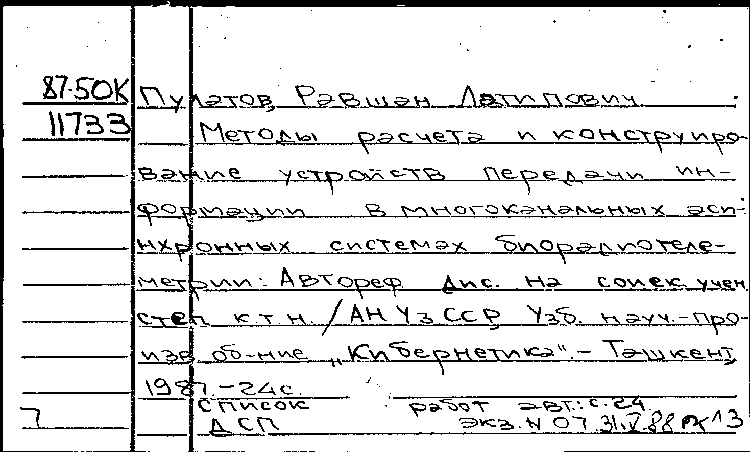 87-50К Пулатов, Равшан Латипович.
11733 Методы расчета и конструиро-
вание устройств передачи ин-
формации в многоканальных аси-
нхронных системах биорадиотеле-
метрии: Автореф дис. на соиск. учен
степ к.т.н. / АН УзССР Узб. науч.-про-
изв об-ние „Кибернетика". - Ташкент,
1987. - 24с
Список работ авт.: с. 24
7 ДСП экз. N 07 31.V.88 13